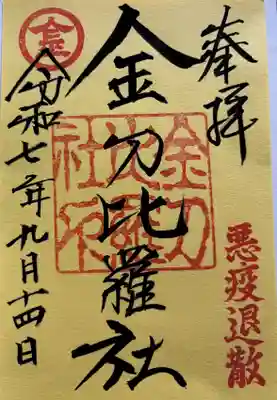 奉拝
悪疫退散
金刀比羅社
金刀比羅社
令和七年九月十四日
金